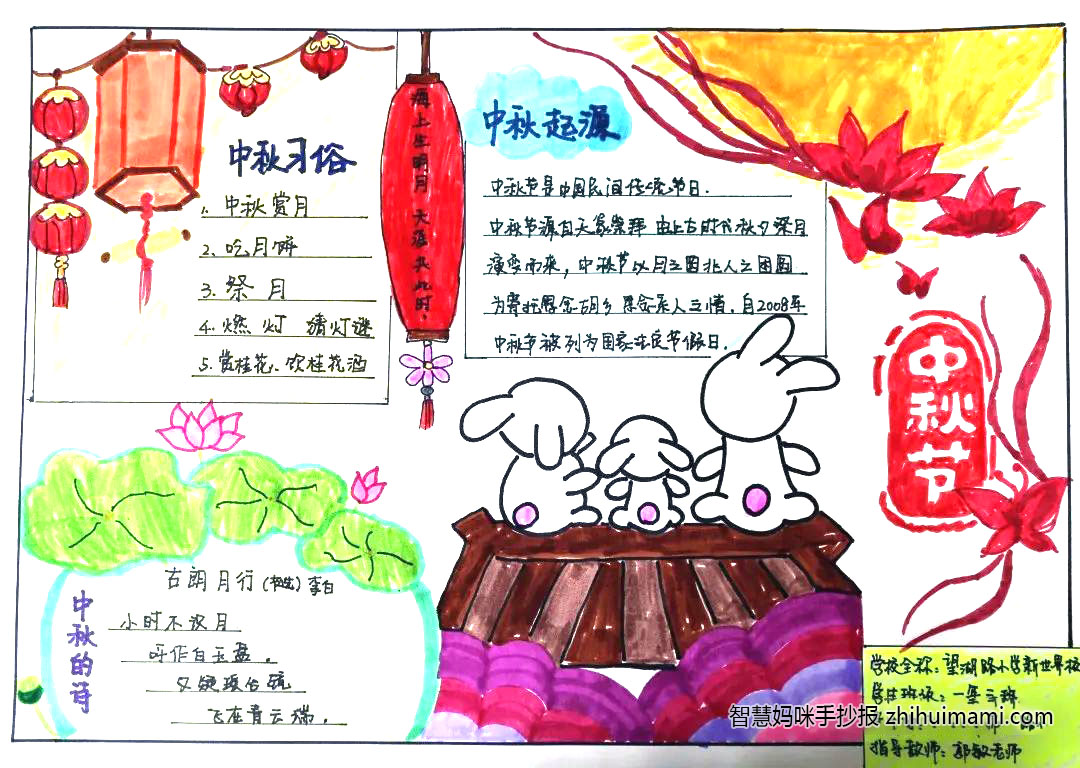 中秋习俗
1. 中秋赏月
2. 吃月饼
3. 祭月
4. 燃灯 猜灯谜
5. 赏桂花、饮桂花酒
海上生明月 天涯共此时,
中秋起源
中秋节是中国民间传统节日.
中秋节源自天象崇拜 由上古时代秋夕祭月
演变而来, 中秋节以月之圆兆人之团圆
为寄托思念故乡 思念亲人之情. 自2008年
中秋节被列为国家法定节假日.
中秋节
中秋的诗
古朗月行 李白
小时不识月
呼作白玉盘.
又疑瑶台镜
飞在青云端.
学校全称: 望湖路小学新世界校
一年三班
指导教师: 郭敏老师
智慧妈咪手抄报 zhihuimami.com